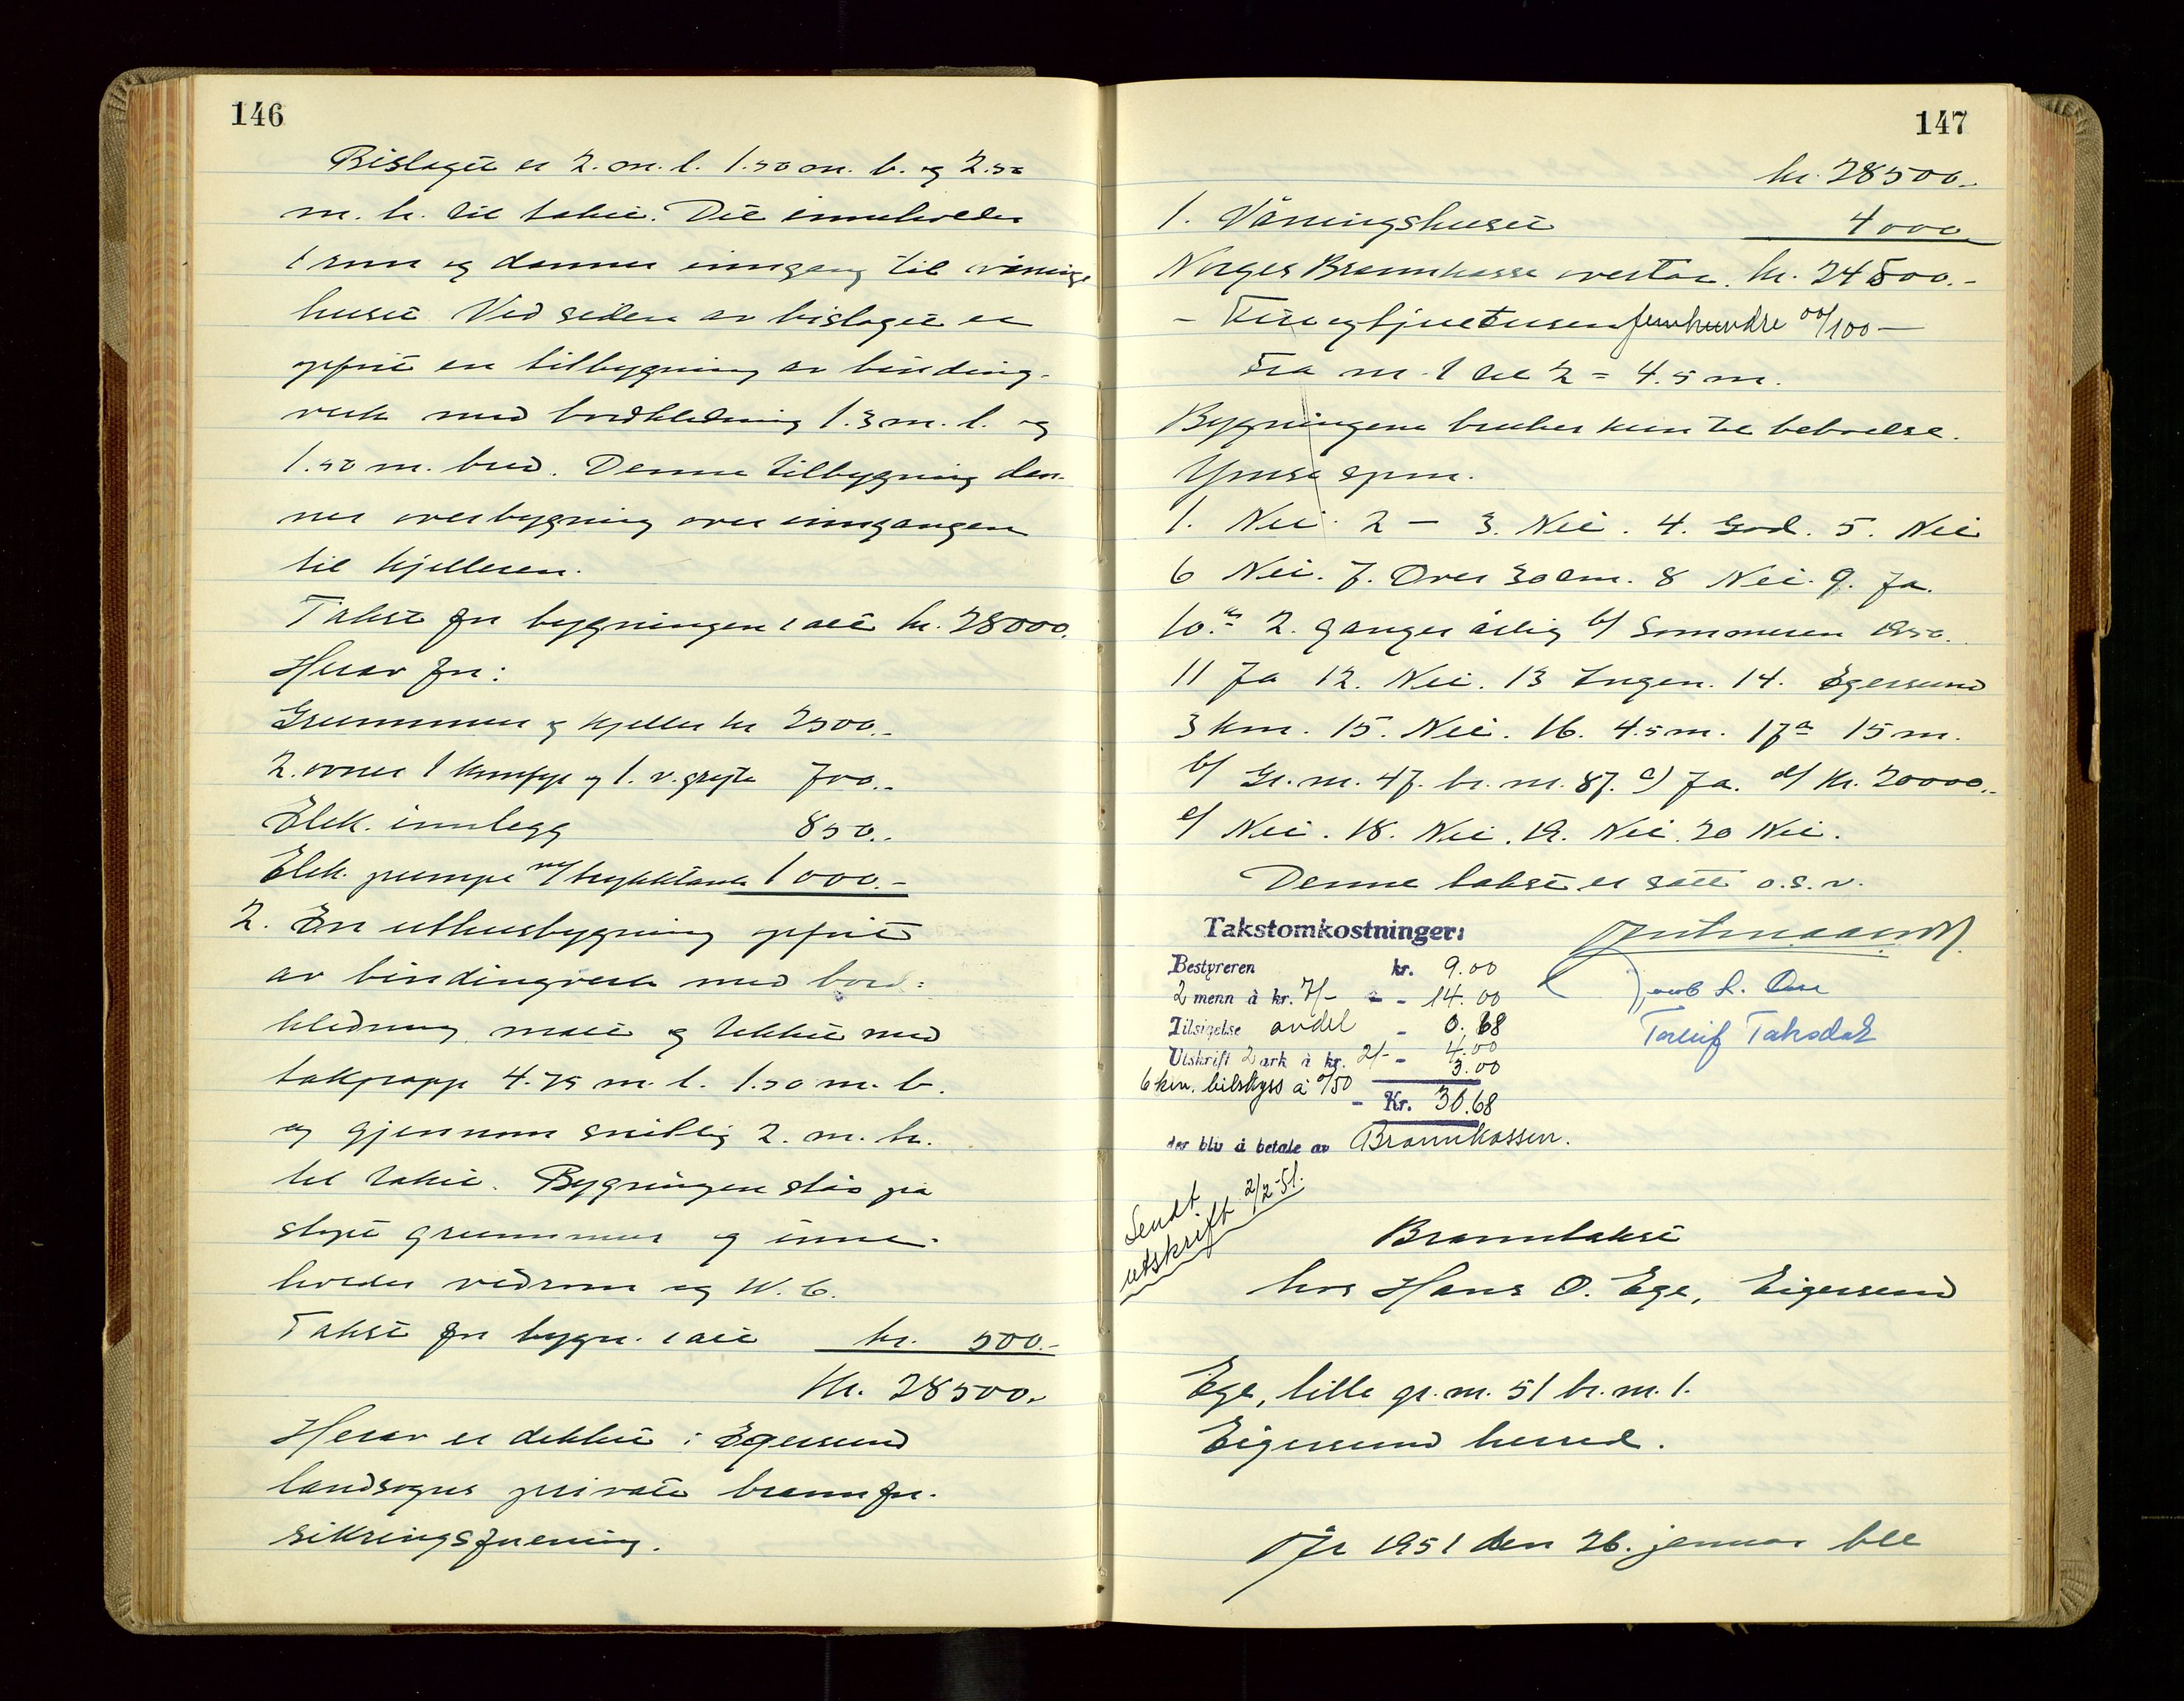 146
Bislaget er 2. m. l. 1.50 m. b. og 2.50
m. h. til taket. Det inneholder
1 rom og danner inngang til vånings
huset Ved siden av bislaget er
oppført en tilbygning av binding-
verk med bordkledning 1.3 m. l. og
1.50 m. bred. Denne tilbygning dan-
ner overbygning over inngangen
til kjelleren.
Takst for bygningen i alt kr. 28000.
Herav for:
Grunnmur og kjeller kr 2500.-
2. ovner 1 komfyr og 1. v. gryte 700.-
Elek. innlegg 850.-
Elek. pumpe m/ trykktank 1000.-
2. En uthusbygning oppført
av bindingverk med bord-
kledning, malt og tekket med
takpapp 4.75 m. l. 1.50 m. b.
og gjennomsnitlig 2. m. h.
til taket. Bygningen står på
støpt grunnmur og inne-
holder vedrom og W. C.
Takst for bygn. i alt kr. 500.-
Kr. 28500.-
Herav er dekket i Egersund
landsogns private brannfor-
sikringsforening.
147
kr. 28500.-
1. Våningshuset 4000
Norges Brannkasse overtar. kr. 24500.-
- Fireogtjuetusenfemhundre 00/100 -
Fra nr. 1 til 2 = 4.5 m.
Bygningene brukes kun til beboelse.
Ymse spm.
1. Nei. 2 - 3. Nei. 4. God. 5. Nei
6 Nei. 7. Over 30 cm. 8 Nei. 9. Ja.
10. a 2. ganger årlig b/ Sommeren 1950.
11 Ja 12. Nei. 13 Ingen. 14. Egersund
3 km. 15. Nei. 16. 4.5 m. 17 a 15 m.
b/ Gr. nr. 47. br. nr. 87. c) Ja. d/ Kr. 20000.-
e/ Nei. 18. Nei. 19. Nei. 20 Nei.
Denne takst er satt o.s.v.
Takstomkostninger:
Bestyreren kr. 9.00
2 menn à kr. 7/- - - 14.00
Tilsigelse andel - 0.68
Utskrift 2 ark à kr. 2/- - 4.00
6 km. bilskyss à 0/50 3.00
- Kr. 30.68
der bliv å betale av Brannkassen.
Torleif Taksdal
Sendt
utskrift 2/2-51.
Branntakst
hos Hans O. Ege, Eigersund
Ege, lille gr. nr. 51 br. nr. 1.
Eigersund herred.
År 1951 den 26. januar ble